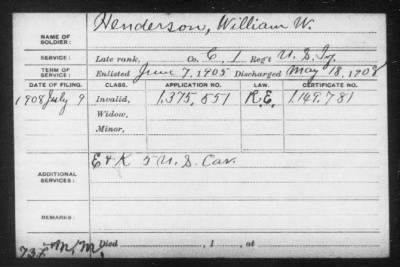 Henderson, William W.
NAME OF SOLDIER:
SERVICE: Late rank, Co. C, 1 Reg't U.S. Iy.
TERM OF SERVICE: Enlisted June 7, 1905 Discharged May 18, 1908
DATE OF FILING. CLASS. APPLICATION NO. LAW. CERTIFICATE NO.
1908 July 9 Invalid, 1,375,551 R.E. 1,149,781
Widow,
Minor,
E & K 5 U.S. Cav.
ADDITIONAL SERVICES:
REMARKS:
Died , 1 , at